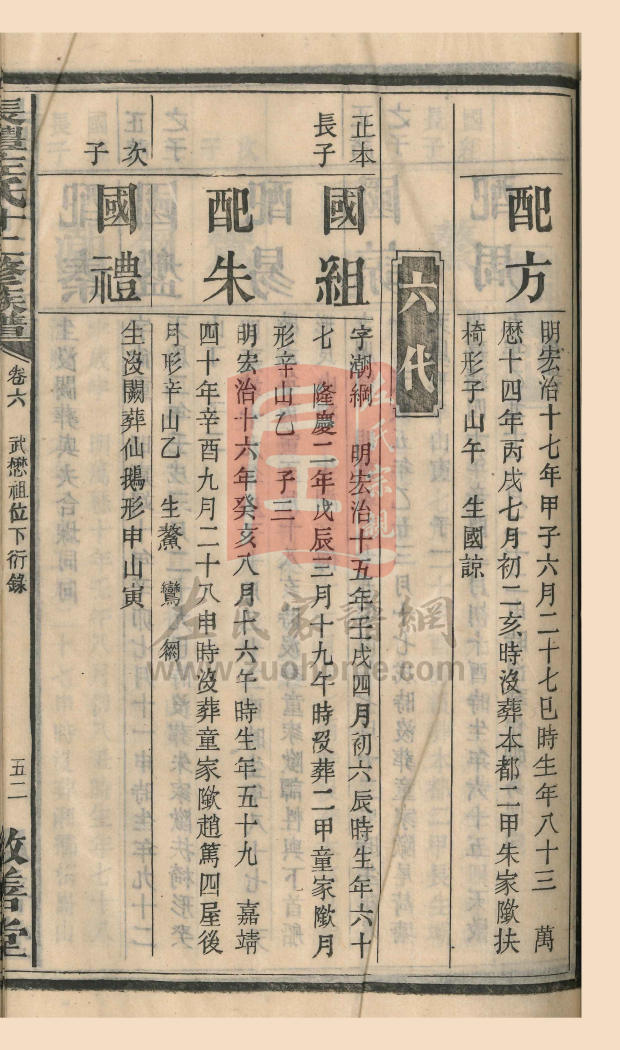 配方
明宏治十七年甲子六月二十七巳時生年八十三　萬
厯十四年丙戌七月初二亥時沒葬本都二甲朱家塅扶
椅形子山午　生國諒
六代
正本
長子
國組
字潮綱　明宏治十五年壬戌四月初六辰時生年六十
七　隆慶二年戊辰三月十九午時沒葬二甲童家塅月
形辛山乙　子三
配朱
明宏治十六年癸亥八月十六午時生年五十九　嘉靖
四十年辛酉九月二十八申時沒葬童家塅趙篤四屋後
月形辛山乙　生鰲　鸞
次
子
國禮
生沒闕葬仙鵝形申山寅
長澧左氏十二修族譜
卷六
武懋祖位下衍錄
五二
敦善堂
左氏家譜網
www.zuohome.com